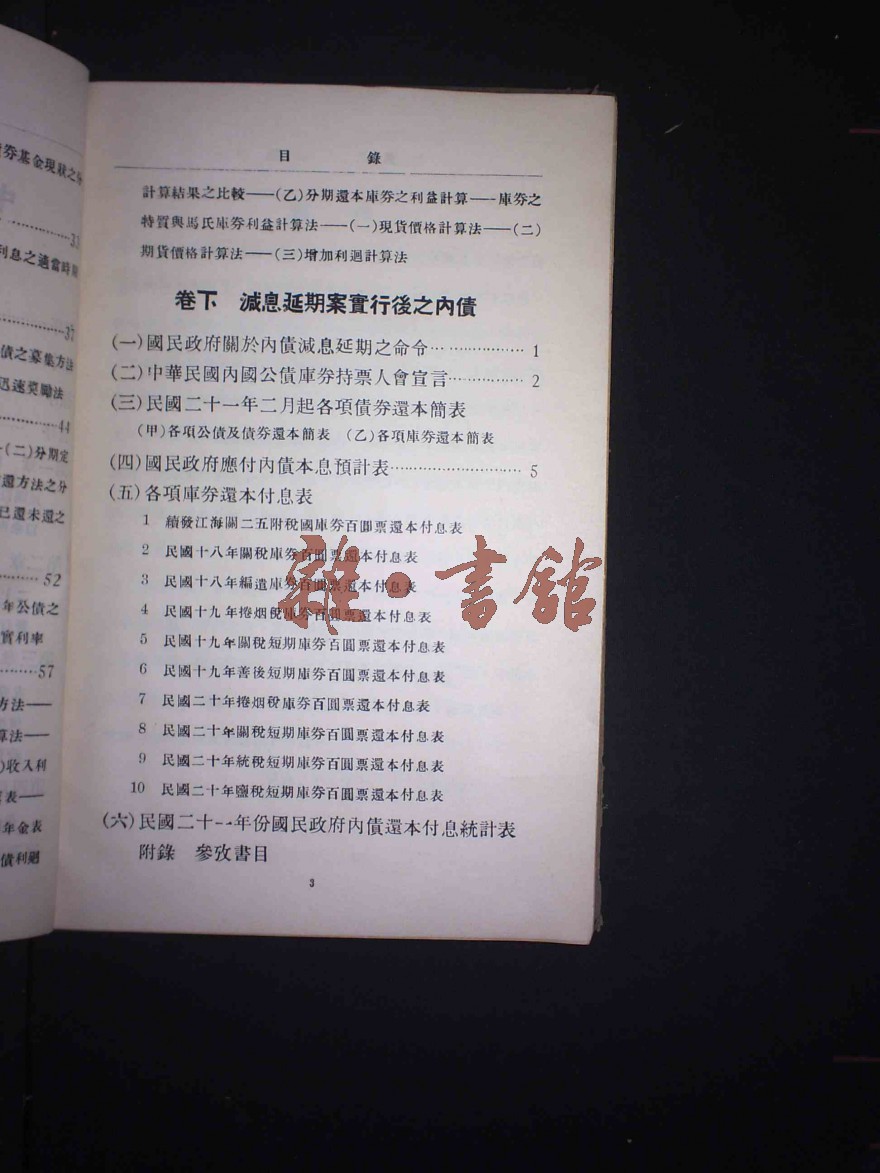 券基金現狀之分
33
利息之適當時期
37
債之募集方法
迅速獎勵法
44
(二)分期定
還方法之分
已還未還之
52
年公債之
實利率
57
方法——
算法——
)收入利
表——
年金表
債利廻
目錄
計算結果之比較——(乙)分期還本庫券之利益計算——庫券之
特質與馬氏庫券利益計算法——(一)現貨價格計算法——(二)
期貨價格計算法——(三)增加利廻計算法
卷下 減息延期案實行後之內債
(一)國民政府關於內債減息延期之命令……………… 1
(二)中華民國內國公債庫券持票人會宣言………… 2
(三)民國二十一年二月起各項債券還本簡表
(甲)各項公債及債券還本簡表 (乙)各項庫券還本簡表
(四)國民政府應付內債本息預計表…………………… 5
(五)各項庫券還本付息表
1 續發江海關二五附稅國庫券百圓票還本付息表
2 民國十八年關稅庫券百圓票還本付息表
3 民國十八年編遣庫券百圓票還本付息表
4 民國十九年捲烟稅庫券百圓票還本付息表
5 民國十九年關稅短期庫券百圓票還本付息表
6 民國十九年善後短期庫券百圓票還本付息表
7 民國二十年捲烟稅庫券百圓票還本付息表
8 民國二十年關稅短期庫券百圓票還本付息表
9 民國二十年統稅短期庫券百圓票還本付息表
10 民國二十年鹽稅短期庫券百圓票還本付息表
(六)民國二十一年份國民政府內債還本付息統計表
附錄 參攷書目
3
雜·書館